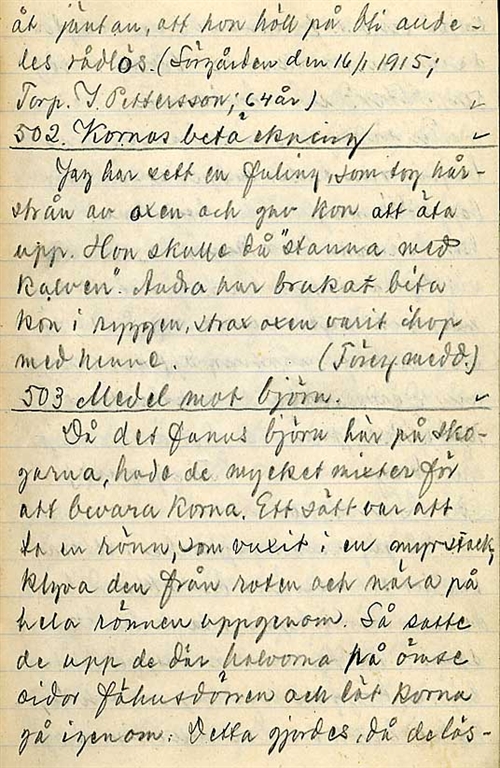 åt jäntan, att hon höll på bli alde-
les rådlös. (Sörgården den 16/1 1915;
Torp. J. Pettersson; 64 år)
502. Kornas betäckning
Jag har sett en som tog hår-
strån av oxen och gav kon att äta
upp. Hon skulle då "stanna med
kalven". Andra har brukat bita
kon i ryggen, strax oxen varit ihop
med henne. (Föreg. medd.)
503 Medel mot björn.
Då det fanns björn här på sko-
garna, hade de mycket mixter för
att bevara korna. Ett sätt var att
ta en rönn, som vuxit i en myrstack,
klyva den från roten och nära på
hela rönnen uppgenom. Så satte
de upp de där halvorna på ömse
sidor fähusdörren och lät korna
gå igenom. Detta gjordes, då de lös-